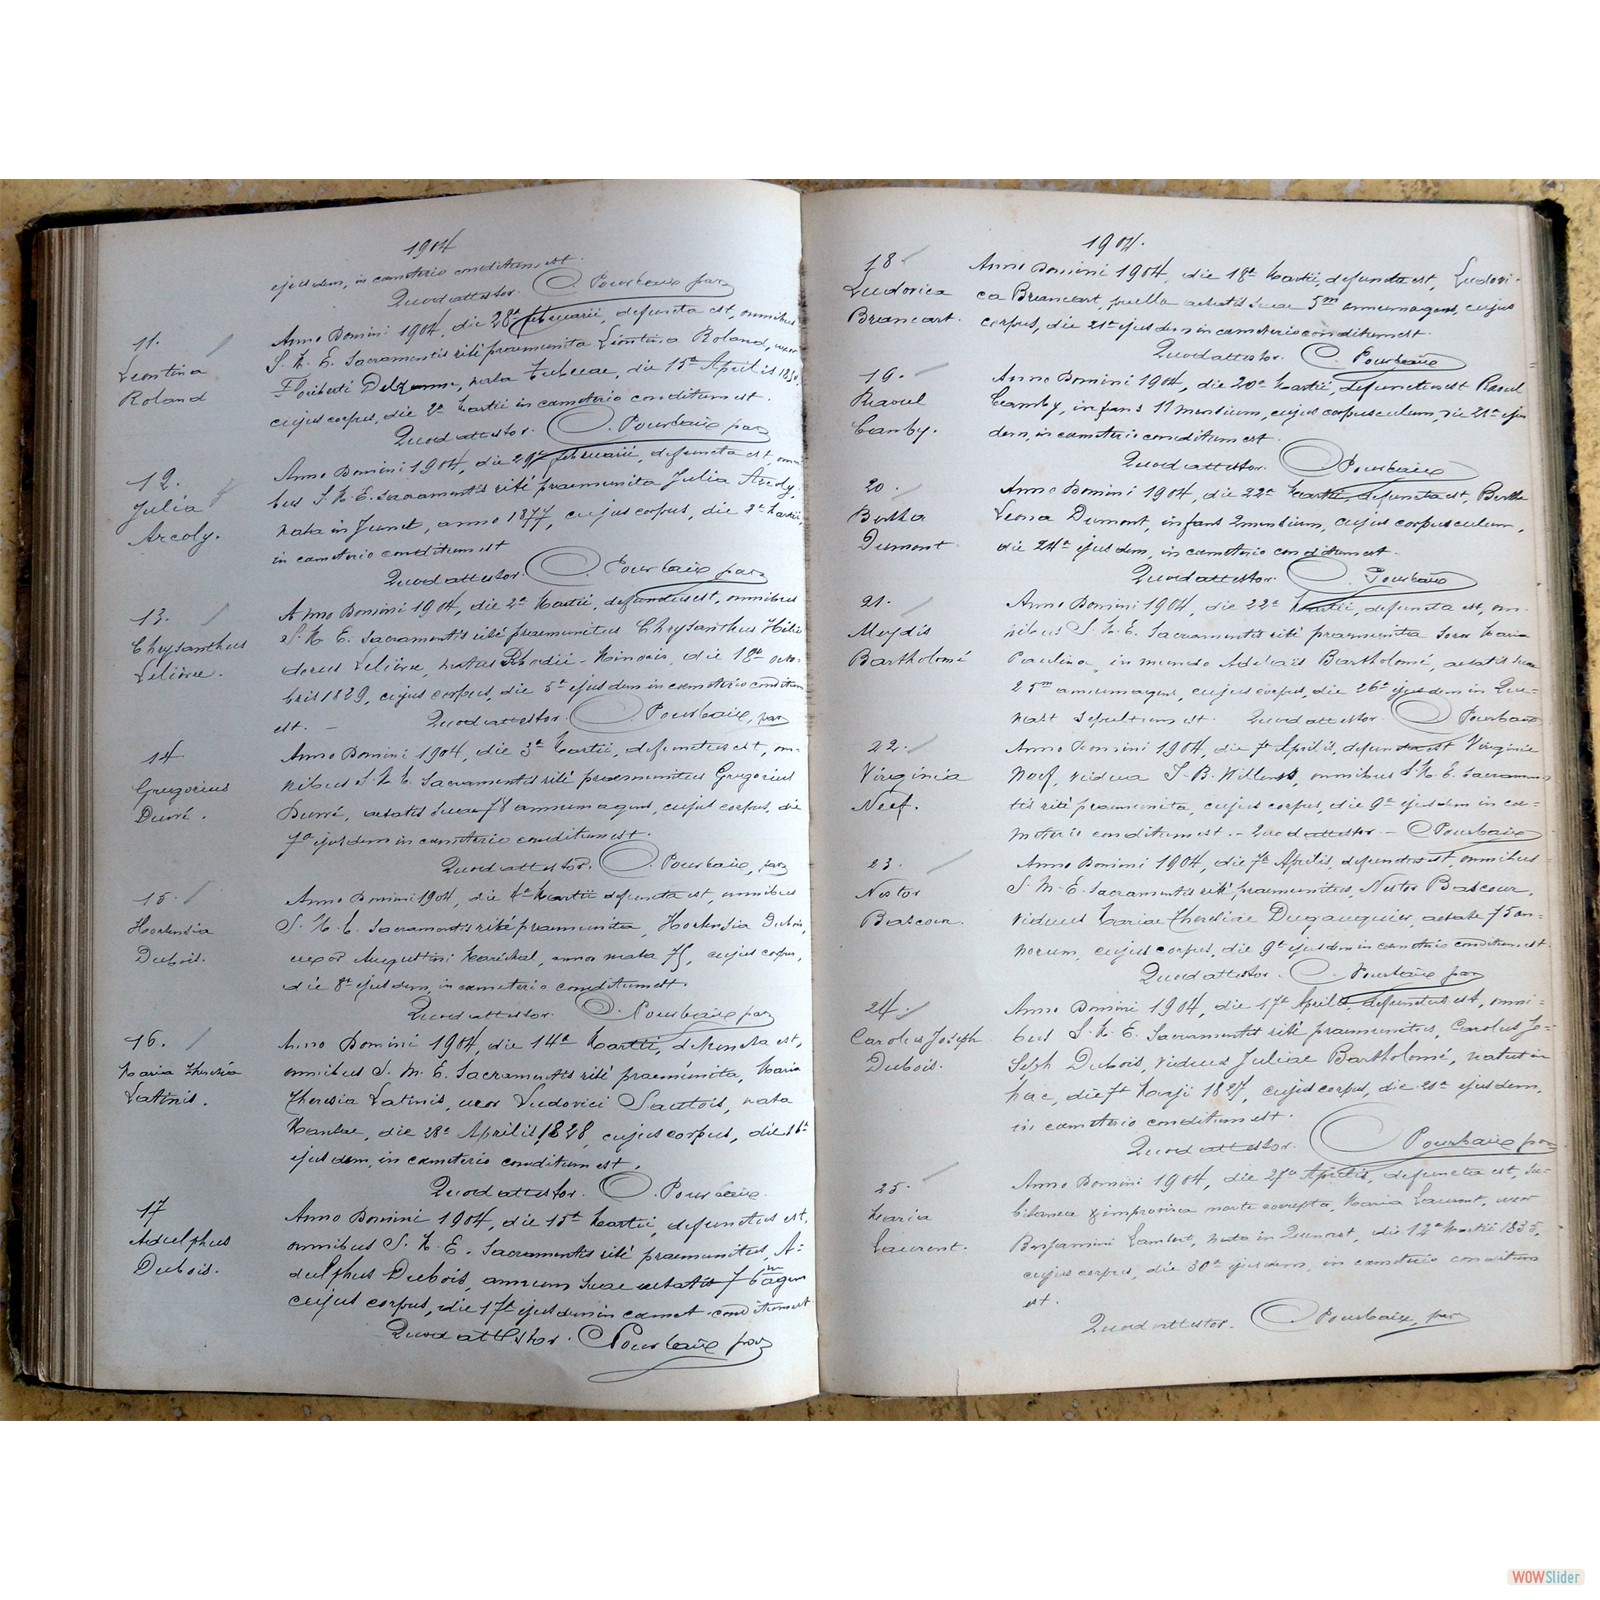 1904
ejusdem, in cœmeterio conditum est.
Quod attestor. C. Pourbaix par
11.
Leontina
Roland
Anno Domini 1904, die 28a februarii, defuncta est, omnibus
S. M. E. Sacramentis rité praemunita Léontina Roland, uxor
nata Tubicae, die 15a Aprilis
cujus corpus, die 2a Martii in cœmeterio conditum est.
Quod attestor. C. Pourbaix par
12.
Julia
Arcoly.
Anno Domini 1904, die 29a februarii, defuncta est, omni
bus S. M. E. Sacramentis rité praemunita Julia
nata in Jumet, anno 1877, cujus corpus, die 2a Martii,
in cœmeterio conditum est
Quod attestor. C. Pourbaix par
13.
Chrysanthus
Lelièvre.
Anno Domini 1904, die 2a Martii, defunctus est, omnibus
S. M. E. Sacramentis rité praemunitus Chrysanthus Helio
dorus Lelièvre, natus Rhodii-, die 18a octo
bris 1829, cujus corpus, die 5a ejusdem in cœmeterio conditum
est. — Quod attestor. C. Pourbaix, par
14
Gregorius
Durré.
Anno Domini 1904, die 3a Martii, defunctus est, om-
nibus S. M. E. Sacramentis rité praemunitus Gregorius
Durré, aetatis suae 78 annum agens, cujus corpus, die
7a ejusdem in cœmeterio conditum est.
Quod attestor. C. Pourbaix, par
15.
Hortensia
Dubois.
Anno Domini 1904, die 4a Martii defuncta est, omnibus
S. M. E. Sacramentis rité praemunita, Hortensia Dubois,
uxor Augustini Maréchal, annos nata 75, cujus corpus,
die 8a ejusdem, in cœmeterio conditum est.
Quod attestor. C. Pourbaix par
16.
Maria Theresia
Latinis.
Anno Domini 1904, die 14a Martii, defuncta est,
omnibus S. M. E. Sacramentis rité praemunita, Maria
Theresia Latinis, uxor Ludovici Sautois, nata
die 28a Aprilis, 1828, cujus corpus, die 16a
ejusdem, in cœmeterio conditum est.
Quod attestor. C. Pourbaix
17
Adulphus
Dubois.
Anno Domini 1904, die 15a Martii, defunctus est,
omnibus S. M. E. Sacramentis rité praemunitus, A-
dulphus Dubois, annum suae aetatis 76m agens
cujus corpus, die 17a ejusdem in cœmet. conditum est
Quod attestor. C. Pourbaix par
1904.
18
Ludovica
Brancart.
Anno Domini 1904, die 18a Martii, defuncta est, Ludovi-
ca Brancart, puella aetatis suae 5m annum agens, cujus
corpus, die 21a ejusdem in cœmeterio conditum est.
Quod attestor. C. Pourbaix
19.
Raoul
Camby.
Anno Domini 1904, die 20a Martii, defunctus est Raoul
Camby, infans 11 mensium, cujus corpusculum, die 21a ejus
dem, in cœmeterio conditum est.
Quod attestor. C. Pourbaix
20.
Bertha
Dumont
Anno Domini 1904, die 22a Martii, defuncta est, Bertha
Leona Dumont, infans 2 mensium, cujus corpusculum,
die 24a ejusdem, in cœmeterio conditum est.
Quod attestor. C. Pourbaix
21.
Bartholomé
Anno Domini 1904, die 22a Martii, defuncta est, om-
nibus S. M. E. Sacramentis rité praemunita Soror Maria
Paulina, in mundo Adelaïs Bartholomé, aetatis suae
25m annum agens, cujus corpus, die 26a ejusdem in Que-
nast sepultum est. Quod attestor. C. Pourbaix
22.
Virginia
Neef.
Anno Domini 1904, die 7a Aprilis, defuncta est Virginia
Neef, vidua J. B. Willems, omnibus S. M. E. Sacramen
tis rité praemunita, cujus corpus, die 9a ejusdem in cœ-
meterio conditum est. - Quod attestor - C. Pourbaix
23.
Nestor
Bascour.
Anno Domini 1904, die 7a Aprilis defunctus est, omnibus
S. M. E. Sacramentis rité praemunitus, Nestor Bascour,
viduus Mariae Theresiae Dugauquier, aetate 75 an-
norum, cujus corpus, die 9a ejusdem in cœmeterio conditum est
Quod attestor. C. Pourbaix par
24.
Carolus Joseph
Dubois.
Anno Domini 1904, die 17a Aprilis, defunctus est, omni-
bus S. M. E. Sacramentis rité praemunitus, Carolus Jo-
seph Dubois, viduus Juliae Bartholomé, natus in
hac, die 7a Maji 1827, cujus corpus, die 20a ejusdem,
in cœmeterio conditum est.
Quod attestor. C. Pourbaix par
25.
Maria
Laurent.
Anno Domini 1904, die 27a Aprilis, defuncta est, su-
bitanea & improvisa morte correpta, Maria Laurent, uxor
Benjamini Lambert, nata in Quenast, die 12a Martii 1835,
cujus corpus, die 30a ejusdem, in cœmeterio conditum
est.
Quod attestor. C. Pourbaix, par
WOWSlider